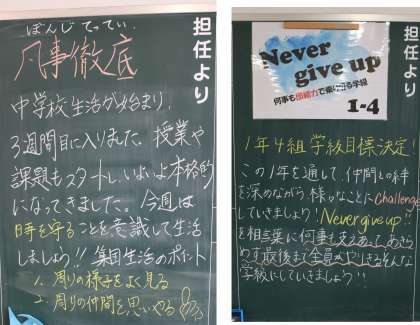 担任より
ぼんじ てってい
凡事徹底
中学校生活が始まり、
3週間目に入りました。授業や
課題もスタートし、いよいよ本格的
になってきました。今週は
時を守ることを意識して生活
しましょう!! 集団生活のポイント
1. 周りの様子をよく見る
2. 周りの仲間を思いやる
担任より
Never
give up
何事も団結力で乗り切る学級
1-4
1年4組 学級目標決定!
この1年を通して、仲間との絆
を深めながら、様々なことにChallenge
していきましょう!! Never give up!!
を相言葉に何事も支えあって、あきら
めず最後まで全員がやりきるそんな
学級にしていきましょう!!